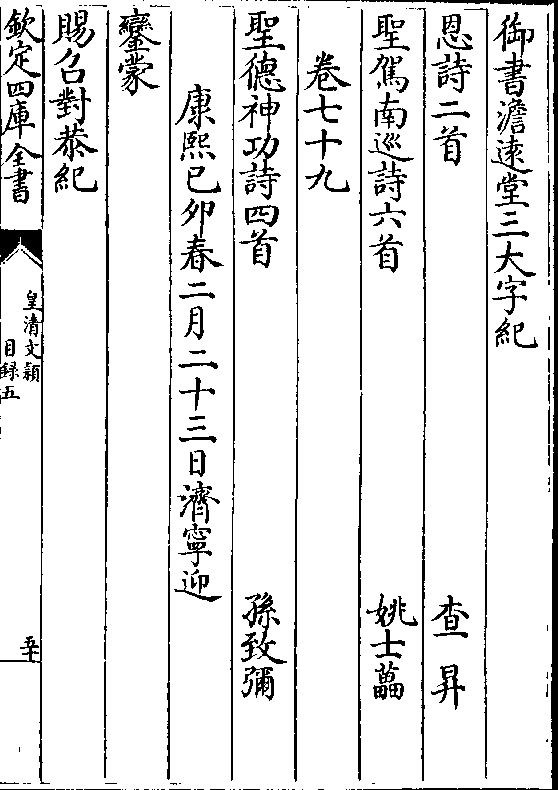 御書澹遠堂三大字紀
恩詩二首 查昇
聖駕南巡詩六首 姚士藟
卷七十九
聖德神功詩四首 孫致彌
康熙己卯春二月二十三日濟寧迎
鑾蒙
賜召對恭紀
欽定四庫全書
皇清文穎
目錄五